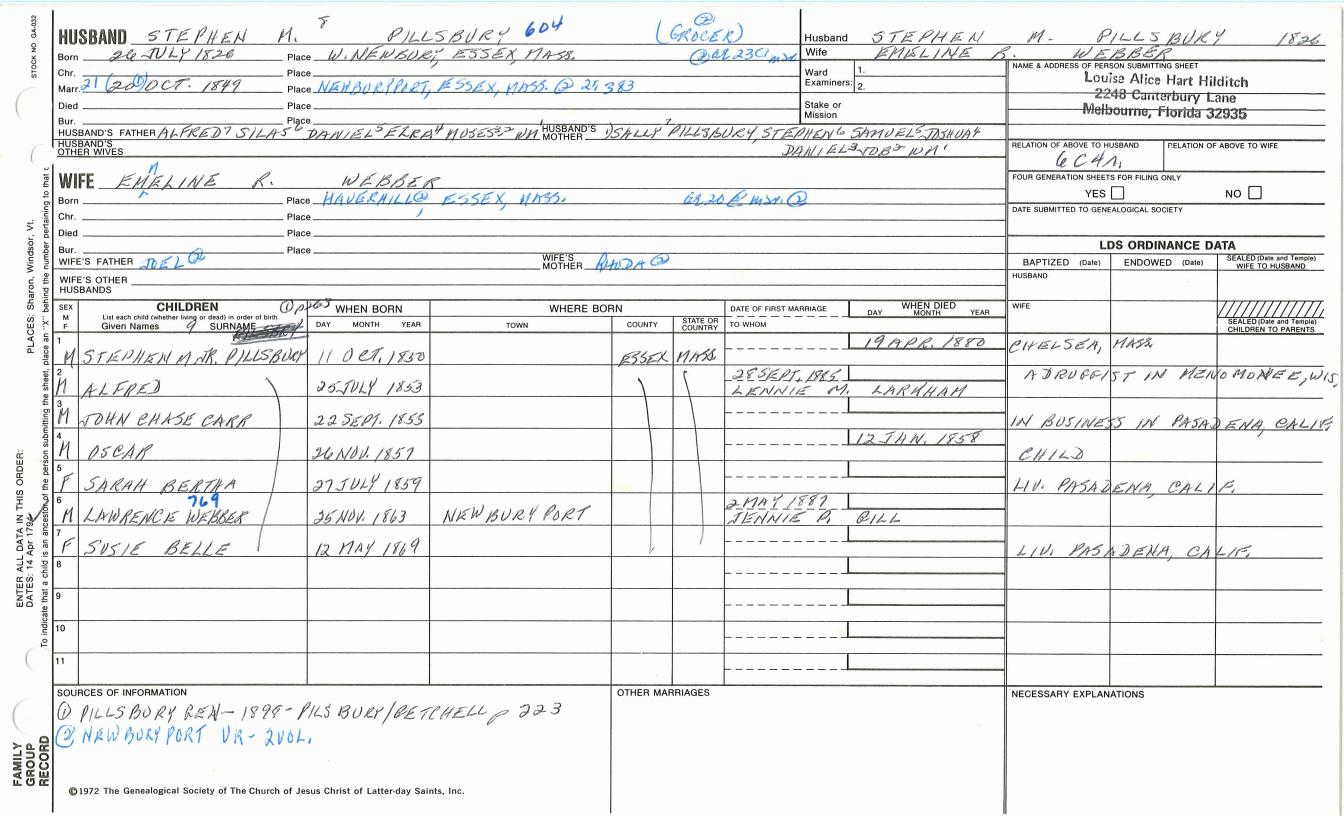 STOCK NO. GA-032
PLACES: Sharon, Windsor, Vt.
ENTER ALL DATA IN THIS ORDER:
DATES: 14 Apr 1794
To indicate that a child is an ancestor of the person submitting the sheet, place an "X" behind the number pertaining to that c
FAMILY GROUP RECORD
HUSBAND STEPHEN M. 8 PILLSBURY 604 (GROCER) ②
Born 26 JULY 1826 Place W. NEWBURY, ESSEX, MASS.
Chr. Place
Marr. 21 (20 ①) OCT. 1849 Place NEWBURYPORT, ESSEX, MASS. ②
Died Place
Bur. Place
HUSBAND'S FATHER ALFRED 7 SILAS 6 DANIEL 5 EZRA 4 MOSES 3,2 WM 1 HUSBAND'S MOTHER SALLY 7 PILLSBURY, STEPHEN 6 SAMUEL 5 JOSHUA 4
HUSBAND'S OTHER WIVES DANIEL 3 JOB 2 WM 1
WIFE EMELINE R. WEBBER
Born Place HAVERHILL ②, ESSEX, MASS.
Chr. Place
Died Place
Bur. Place
WIFE'S FATHER JOEL ② WIFE'S MOTHER RHODA ②
WIFE'S OTHER HUSBANDS
Husband STEPHEN M. PILLSBURY 1826
Wife EMELINE R. WEBBER
Ward Examiners: 1. 2.
Stake or Mission
NAME & ADDRESS OF PERSON SUBMITTING SHEET
Louise Alice Hart Hilditch
2248 Canterbury Lane
Melbourne, Florida 32935
RELATION OF ABOVE TO HUSBAND RELATION OF ABOVE TO WIFE
FOUR GENERATION SHEETS FOR FILING ONLY
YES NO
DATE SUBMITTED TO GENEALOGICAL SOCIETY
LDS ORDINANCE DATA
BAPTIZED (Date) ENDOWED (Date) SEALED (Date and Temple) WIFE TO HUSBAND
HUSBAND
WIFE
SEALED (Date and Temple) CHILDREN TO PARENTS
SEX M F CHILDREN WHEN BORN WHERE BORN DATE OF FIRST MARRIAGE WHEN DIED
List each child (whether living or dead) in order of birth.
Given Names 9 SURNAME DAY MONTH YEAR TOWN COUNTY STATE OR COUNTRY TO WHOM DAY MONTH YEAR
1 M STEPHEN M. JR. PILLSBURY 11 OCT. 1850 ESSEX MASS 19 APR. 1880 CHELSEA, MASS
2 M ALFRED 25 JULY 1853 28 SEPT. 1885 LENNIE M. LARKHAM A DRUGGIST IN MENOMONEE, WIS.
3 M JOHN CHASE CARR 22 SEPT. 1855 IN BUSINESS IN PASADENA, CALIF.
4 M OSCAR 26 NOV. 1857 12 JAN. 1858 CHILD
5 F SARAH BERTHA 27 JULY 1859 LIV. PASADENA, CALIF.
6 M LAWRENCE WEBBER 769 25 NOV. 1863 NEWBURYPORT 2 MAY 1887 JENNIE P. GILL
7 F SUSIE BELLE 12 MAY 1869 LIV. PASADENA, CALIF.
8
9
10
11
SOURCES OF INFORMATION
① PILLSBURY GEN- 1898- PILSBURY/GETCHELL p 223
② NEWBURYPORT VR- 2 VOL.
OTHER MARRIAGES
NECESSARY EXPLANATIONS
©1972 The Genealogical Society of The Church of Jesus Christ of Latter-day Saints, Inc.